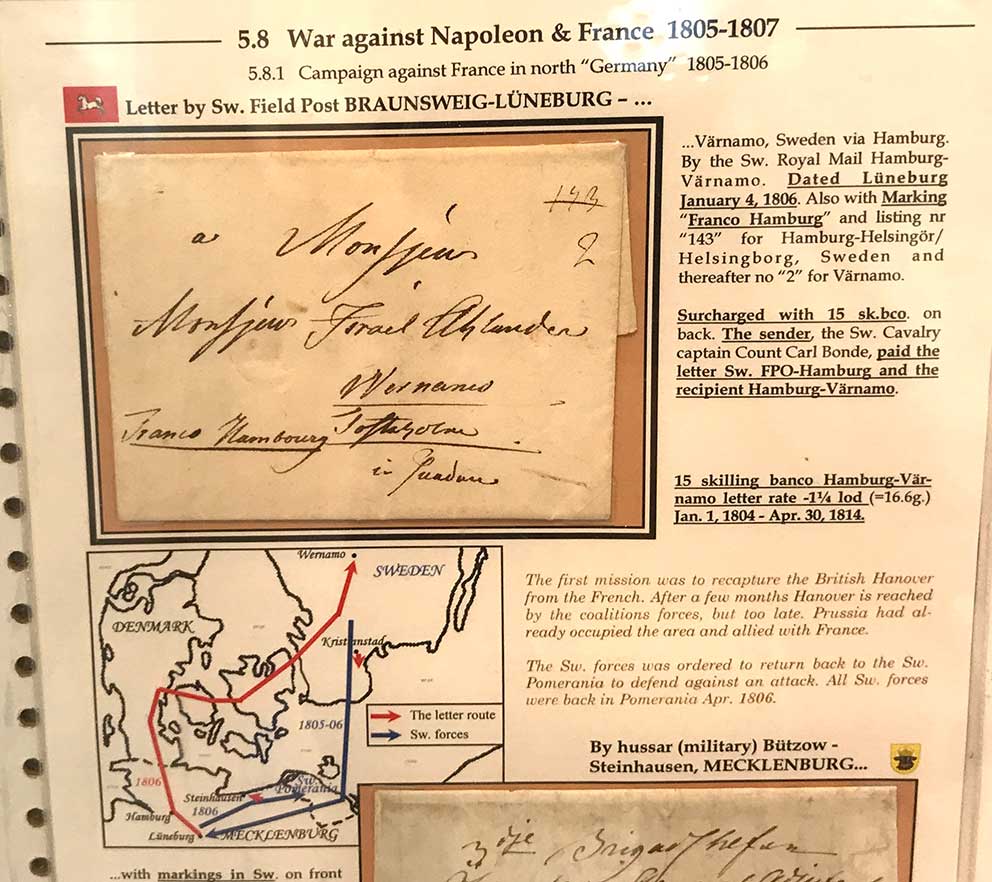 5.8 War against Napoleon & France 1805-1807
5.8.1 Campaign against France in north “Germany” 1805-1806
Letter by Sw. Field Post BRAUNSWEIG-LÜNEBURG – ...
...Värnamo, Sweden via Hamburg.
By the Sw. Royal Mail Hamburg-
Värnamo. Dated Lüneburg
January 4, 1806. Also with Marking
“Franco Hamburg” and listing nr
“143” for Hamburg-Helsingör/
Helsingborg, Sweden and
thereafter no “2” for Värnamo.
Surcharged with 15 sk.bco. on
back. The sender, the Sw. Cavalry
captain Count Carl Bonde, paid the
letter Sw. FPO-Hamburg and the
recipient Hamburg-Värnamo.
15 skilling banco Hamburg-Vär-
namo letter rate -1¼ lod (=16.6g.)
Jan. 1, 1804 - Apr. 30, 1814.
143
2
a Monsieur
Monsieur Israel Ahlander
Wernamo
Franco Hambourg
in
Wernamo
SWEDEN
DENMARK
Kristianstad
1805-06
The letter route
Sw. forces
1806
Sw.
Pomerania
Steinhausen
1806
Hamburg
Lüneburg
MECKLENBURG
The first mission was to recapture the British Hanover
from the French. After a few months Hanover is reached
by the coalitions forces, but too late. Prussia had al-
ready occupied the area and allied with France.
The Sw. forces was ordered to return back to the Sw.
Pomerania to defend against an attack. All Sw. forces
were back in Pomerania Apr. 1806.
By hussar (military) Bützow -
Steinhausen, MECKLENBURG...
...with markings in Sw. on front